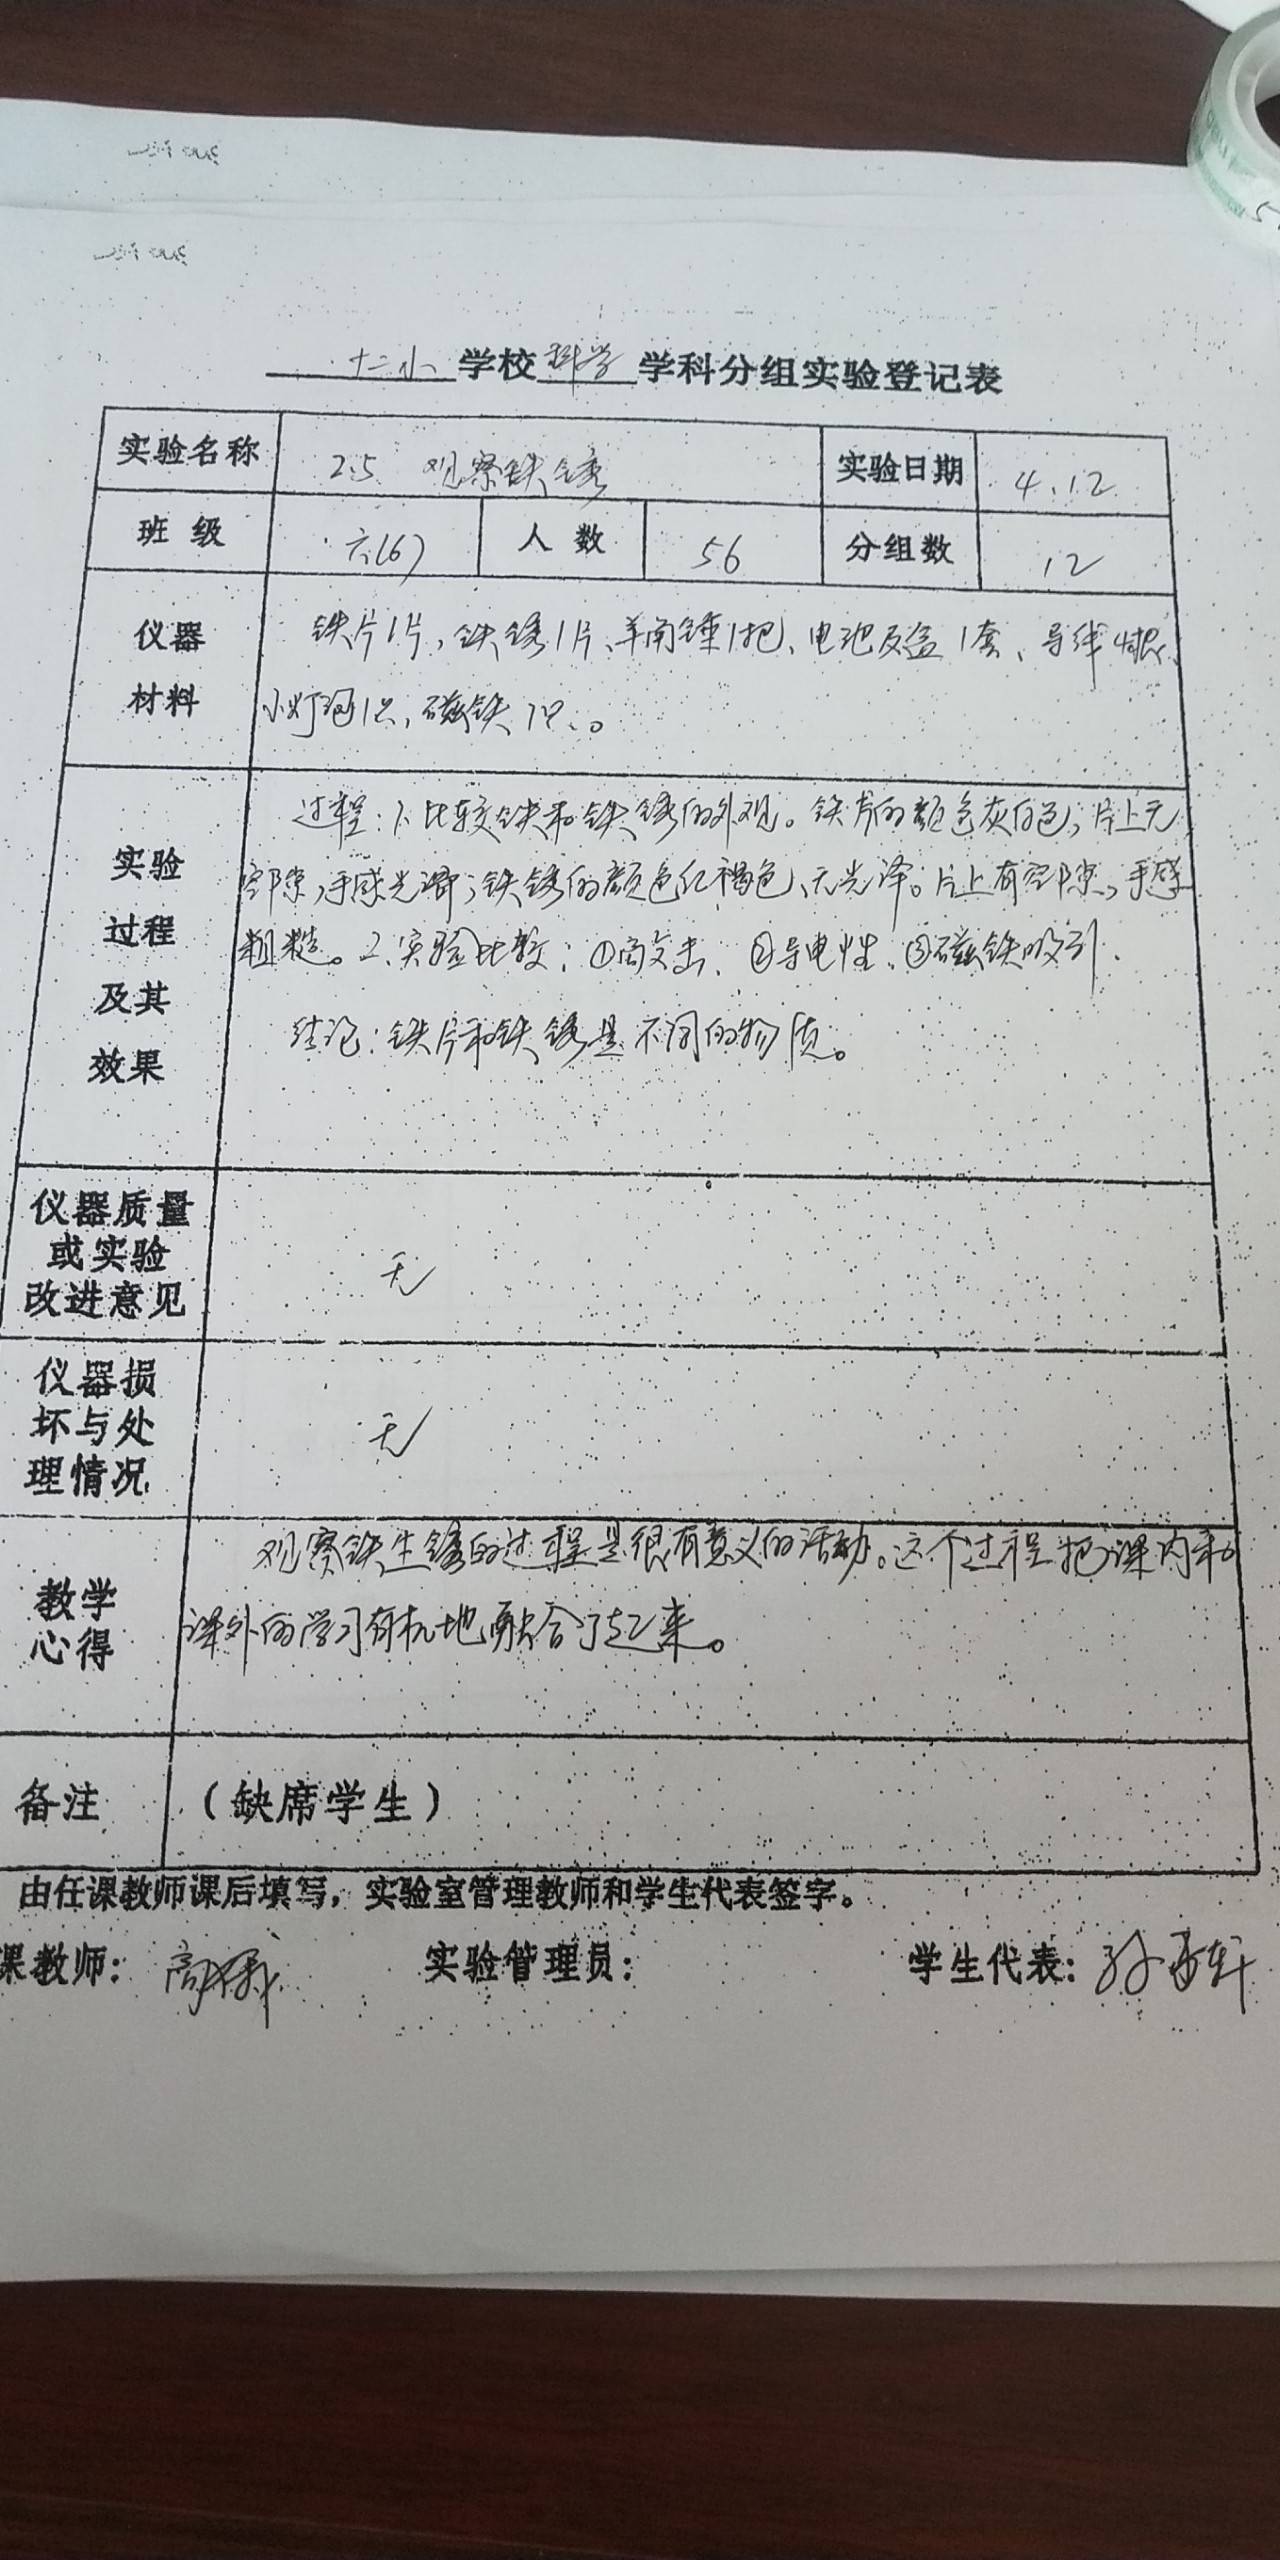 十二小 学校 科学 学科分组实验登记表
实验名称 2.5 观察铁锈 实验日期 4.12
班级 六(6) 人数 56 分组数 12
仪器材料
铁片1片,铁锈1片、羊角锤1把、电池及盒1套、导线4根、
小灯泡1只,磁铁1只、。
实验过程及其效果
过程:1、比较铁和铁锈的外观。铁片的颜色灰白色,片上无
空隙,手感光滑;铁锈的颜色红褐色、无光泽。片上有空隙,手感
粗糙。2、实验比较:①敲击、②导电性、③磁铁吸引.
结论:铁片和铁锈是不同的物质。
仪器质量
或实验
改进意见
无
仪器损
坏与处
理情况
无
教学
心得
观察铁生锈的过程是很有意义的活动。这个过程把课内和
课外的学习有机地融合了起来。
备注 (缺席学生)
由任课教师课后填写,实验室管理教师和学生代表签字。
课教师: 实验管理员: 学生代表: